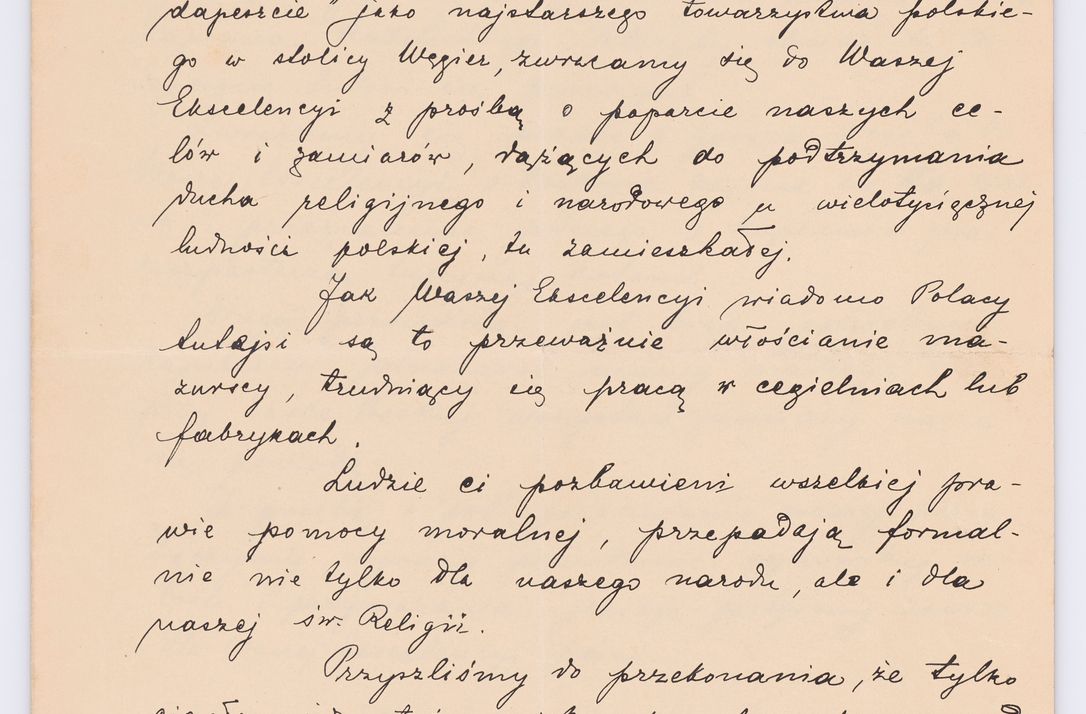 dapeszcie" jako najstarszego towarzystwa polskie-
go w stolicy Węgier, zwracamy się do Waszej
Ekscelencyi z prośbą o poparcie naszych ce-
lów i zamiarów, dążących do podtrzymania
ducha religijnego i narodowego u wielotysięcznej
ludności polskiej, tu zamieszkałej.
Jak Waszej Ekscelencyi wiadomo Polacy
tutejsi są to przeważnie włościanie ma-
zurscy, trudniący się pracą w cegielniach lub
fabrykach.
Ludzie ci pozbawieni wszelkiej pra-
wie pomocy moralnej, przepadają formal-
nie nie tylko dla naszego narodu, ale i dla
naszej św. Religii.
Przyszliśmy do przekonania, że tylko